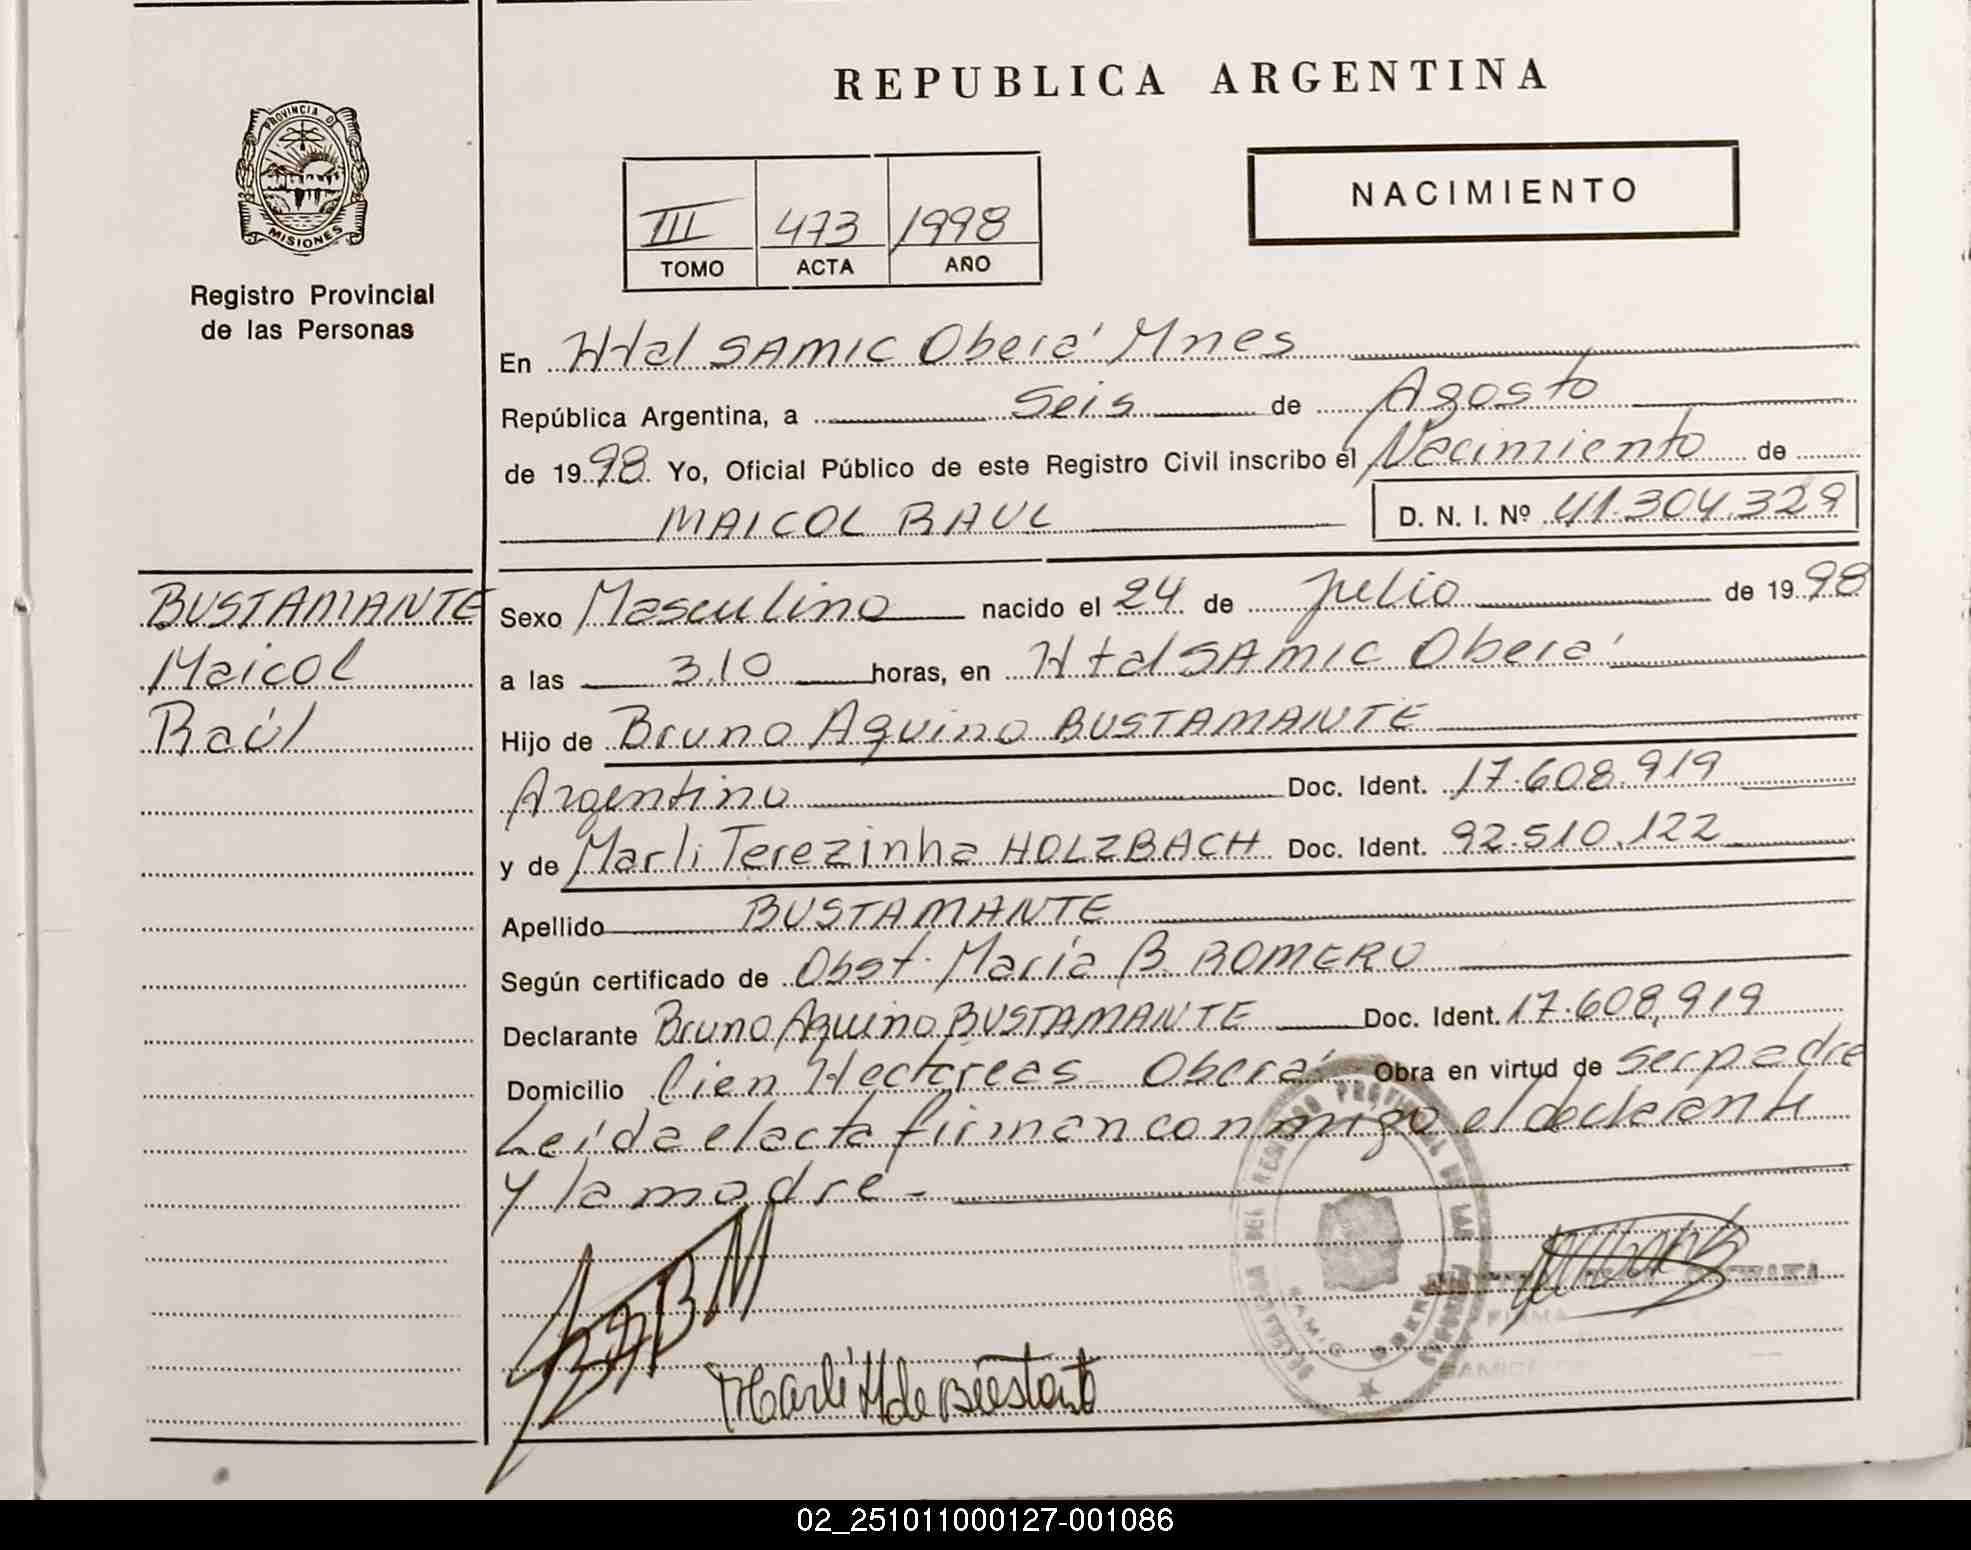 REPUBLICA ARGENTINA
PROVINCIA D
MISIONES
Registro Provincial
de las Personas
NACIMIENTO
III 473 1998
TOMO ACTA AÑO
En Htal SAMIC Oberá Mnes
República Argentina, a Seis de Agosto
de 1998 Yo, Oficial Público de este Registro Civil inscribo el Nacimiento de
MAICOL RAUL D. N. I. Nº 41.304.329
BUSTAMANTE
Maicol
Raúl
Sexo Masculino nacido el 24 de Julio de 1998
a las 3.10 horas, en Htal SAMIC Oberá
Hijo de Bruno Aquino BUSTAMANTE
Argentino Doc. Ident. 17.608.919
y de Marli Terezinha HOLZBACH Doc. Ident. 92.510.122
Apellido BUSTAMANTE
Según certificado de Obst. María B. ROMERO
Declarante Bruno Aquino BUSTAMANTE Doc. Ident. 17.608.919
Domicilio Cien Hectáreas Oberá Obra en virtud de ser padre
Leída el acta firman conmigo el declarante
y la madre.-
Marli H de Bustamante
FIRMA
SAMIC
02_251011000127-001086